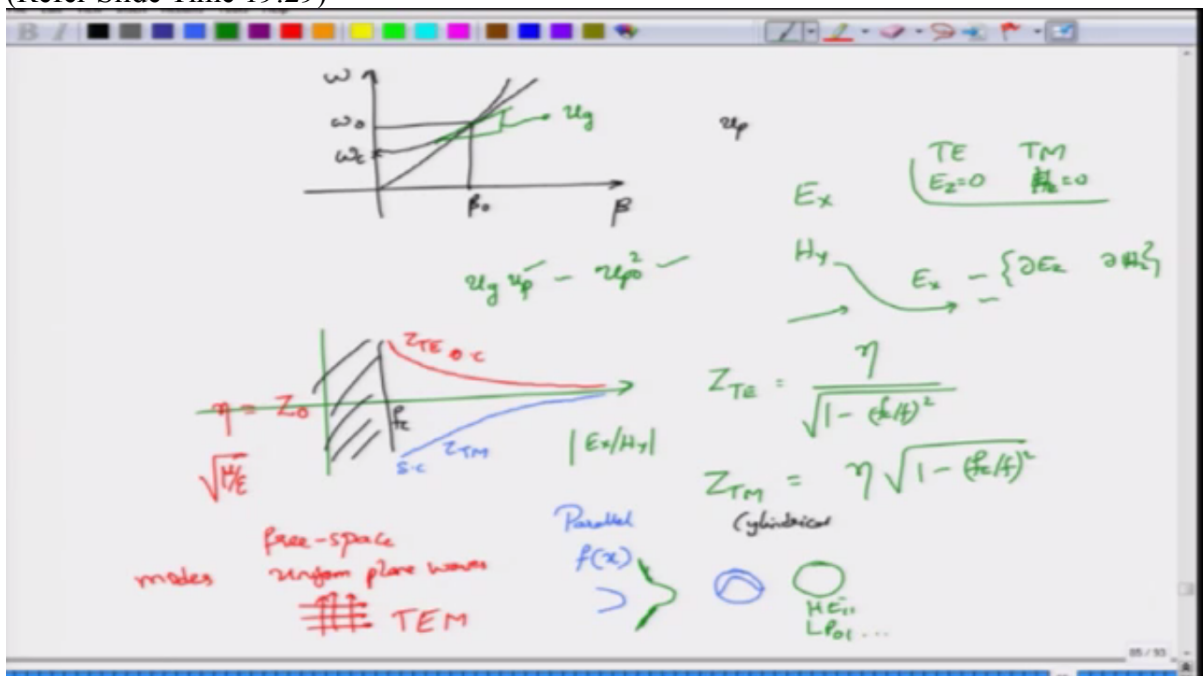 (Refer Slide Time 19:29)
ω
ω₀
ωc
u_g
β₀
β
u_p
TE TM
E_z=0 H_z=0
E_x
H_y
E_x – {∂E_z ∂H_z}
u_g u_p – u_p0²
Z_TE O.C
η = Z₀
√μ/ε
f_c
S.C Z_TM
|E_x/H_y|
Z_TE = η / √1 - (f_c/f)²
Z_TM = η √1 - (f_c/f)²
free-space
modes uniform plane waves
TEM
Parallel
f(x)
Cylindrical
HE₁₁
LP₀₁ ...
85 / 93